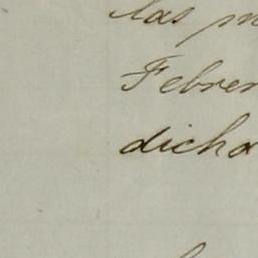 las m
Febrer
dicha